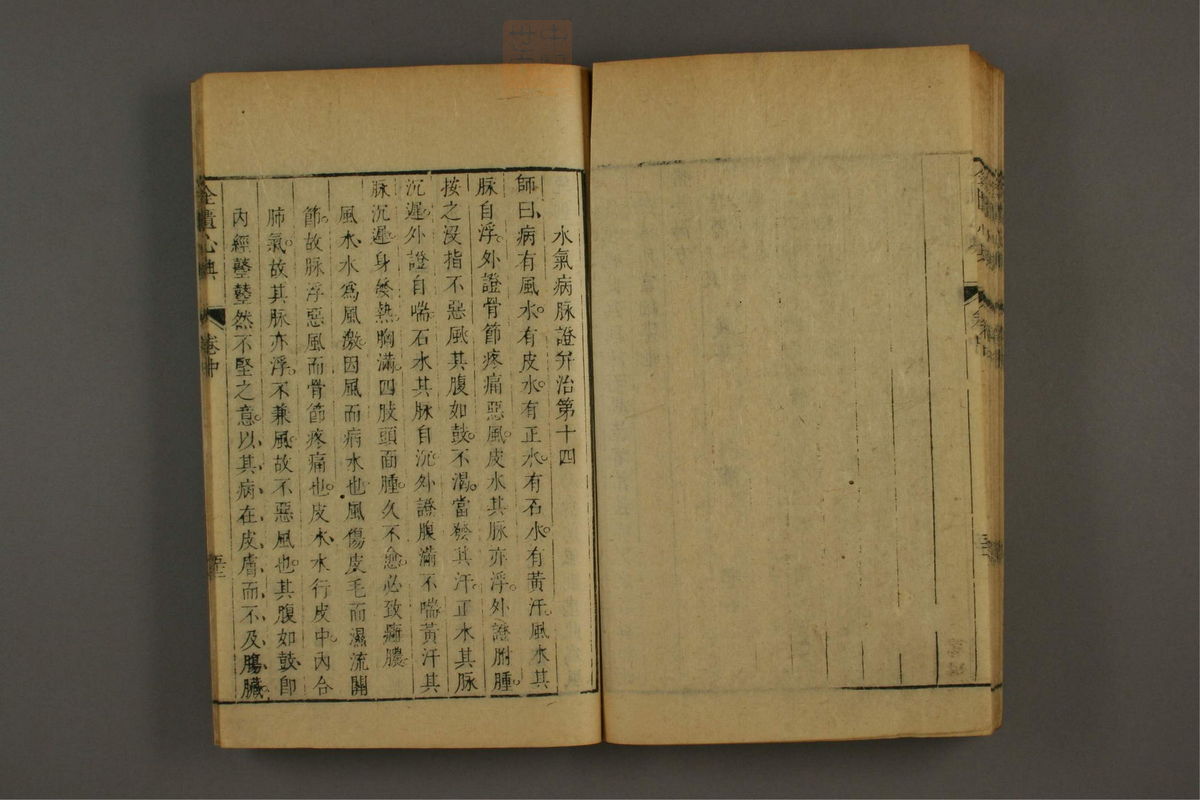 水氣病脉證并治第十四
師曰病有風水有皮水有正水有石水有黃汗風水其
脉自浮外證骨節疼痛惡風皮水其脉亦浮外證胕腫
按之沒指不惡風其腹如鼓不渴當發其汗正水其脉
沉遲外證自喘石水其脉自沉外證腹滿不喘黃汗其
脉沉遲身發熱胸滿四肢頭面腫久不愈必致癰膿
風水水爲風激因風而病水也風傷皮毛而濕流關
節故脉浮惡風而骨節疼痛也皮水水行皮中內合
肺氣故其脉亦浮不兼風故不惡風也其腹如鼓即
內經鼞鼞然不堅之意以其病在皮膚而不及腸臟
金匱心典
卷中